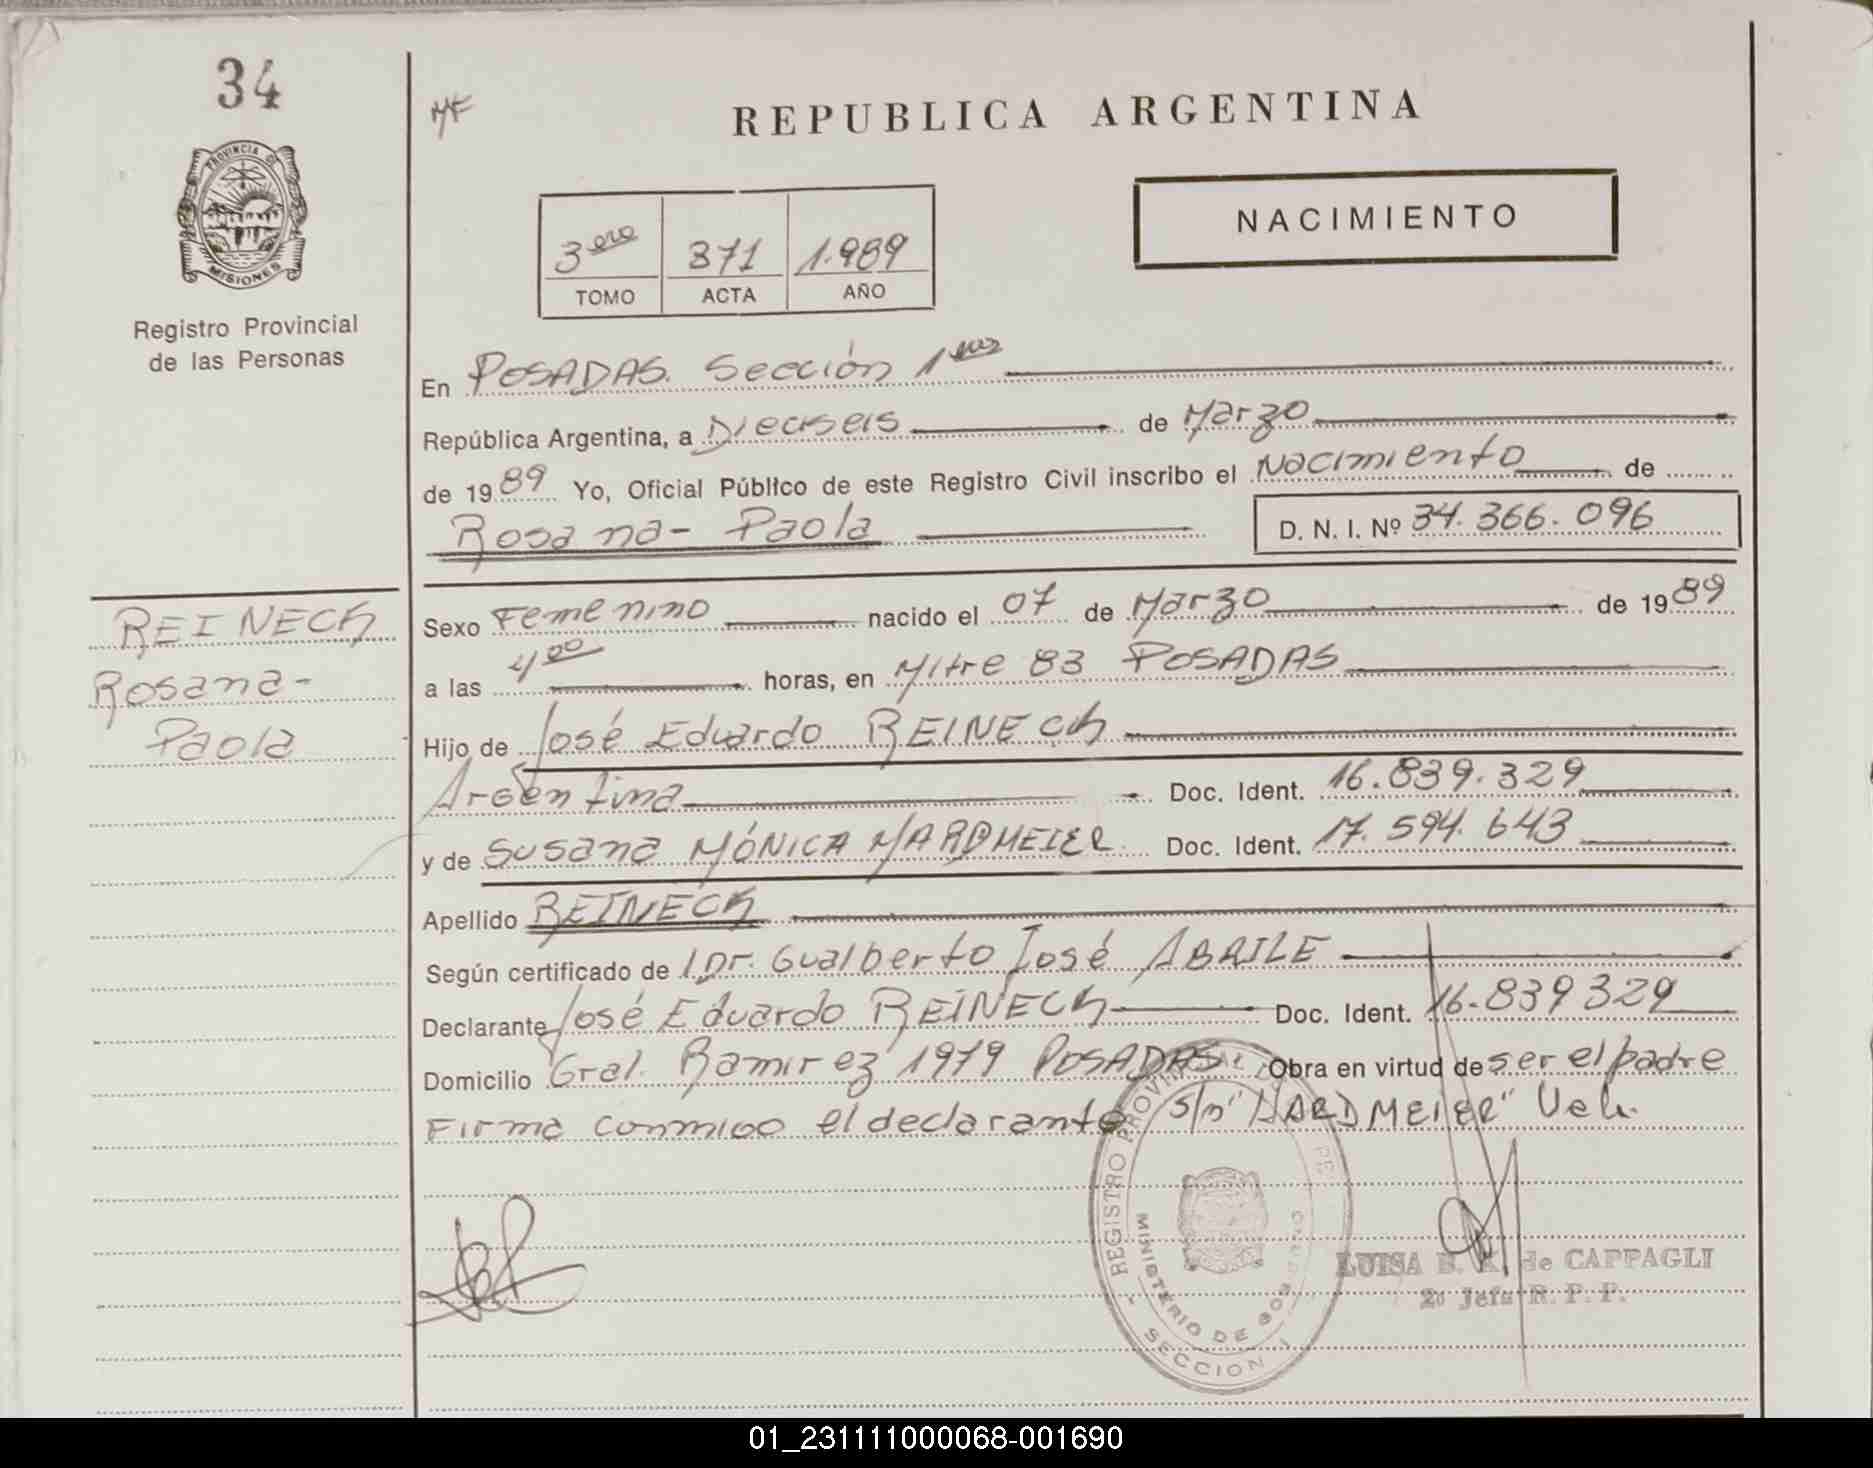 34
PROVINCIA DE
MISIONES
Registro Provincial
de las Personas
REPUBLICA ARGENTINA
NACIMIENTO
3ero 371 1.989
TOMO ACTA AÑO
En POSADAS. Sección 1era
República Argentina, a Dieciseis de Marzo
de 1989 Yo, Oficial Público de este Registro Civil inscribo el Nacimiento de
Rosana- Paola D. N. I. Nº 34.366.096
REINECK
Rosana-
Paola
Sexo Femenino nacido el 07 de Marzo de 1989
a las 4 00 horas, en Mitre 83 POSADAS
Hijo de José Eduardo REINECK
Argentina Doc. Ident. 16.839.329
y de Susana MÓNICA HARDMEIER Doc. Ident. 17.594.643
Apellido REINECK
Según certificado de Dr. Gualberto José ABRILE
Declarante José Eduardo REINECK Doc. Ident. 16.839329
Domicilio Gral. Ramirez 1979 POSADAS Obra en virtud de ser el padre
Firma conmigo el declarante s/n "HARDMEIER" Vale.
REGISTRO PROVINCIAL DE
MINISTERIO DE GOBIERNO
SECCION 1
LUISA B. K. de CAPPAGLI
2º Jefe R. P. P.
01_231111000068-001690